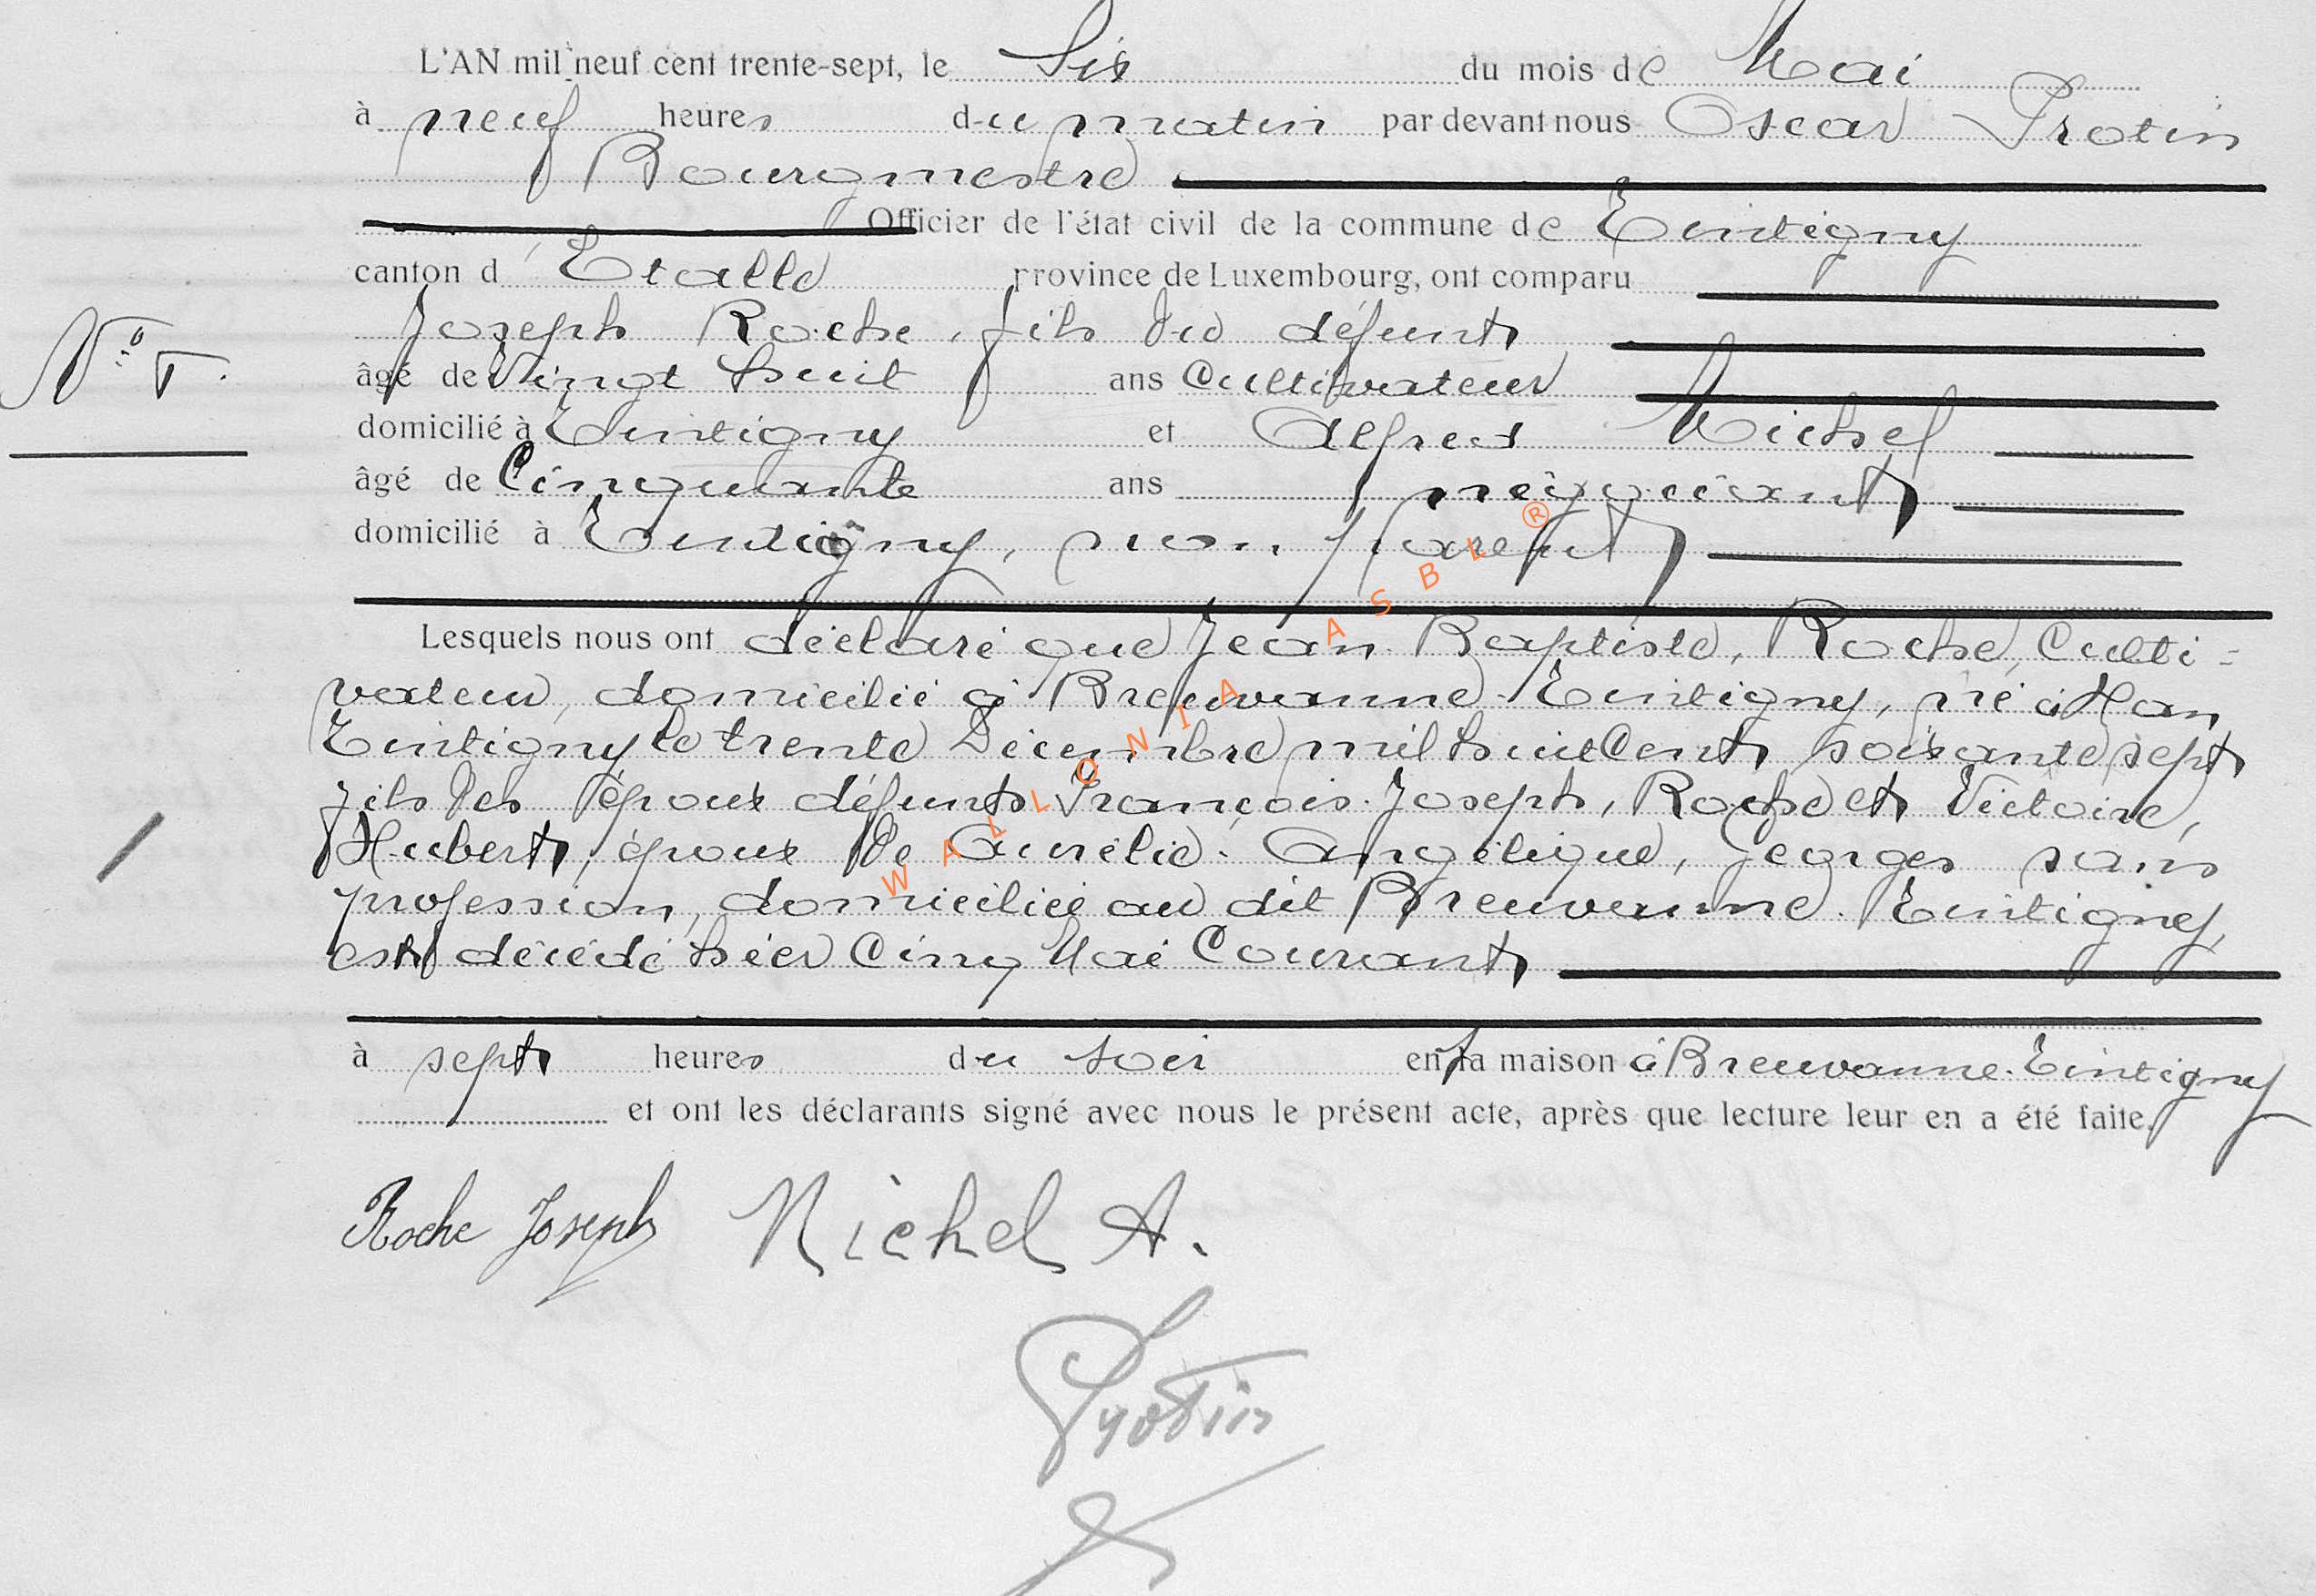 L'AN mil neuf cent trente-sept, le Six du mois de Mai
à neuf heures du matin par devant nous Oscar Protin
Bourgmestre
Officier de l'état civil de la commune de Tintigny
canton d'Etalle province de Luxembourg, ont comparu
Joseph Roche, fils du défunt
N°
âgé de Vingt huit ans Cultivateur
domicilié à Tintigny et Alfred Michel
âgé de Cinquante ans négociant
domicilié à Tintigny, non parent
Lesquels nous ont déclaré que Jean Baptiste, Roche, Culti=
vateur, domicilié à Breuvanne-Tintigny, né à Han
Tintigny le trente Décembre mil huit Cent soixante sept
fils des époux défunts François-Joseph, Roche et Victoire,
Hubert, époux de Aurélie-Angélique, Georges sans
profession, domiciliée au dit Breuvanne-Tintigny,
est décédé hier Cinq Mai Courant
à sept heures du soir en sa maison à Breuvanne-Tintigny
et ont les déclarants signé avec nous le présent acte, après que lecture leur en a été faite.
Roche Joseph Michel A.
Protin
WALLONIA ASBL ®